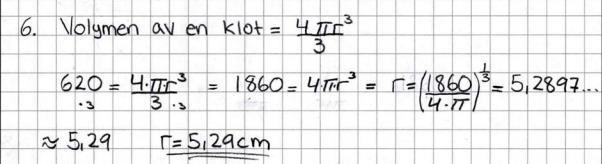 6. Volymen av en klot = 4πr³/3
620 = 4·π·r³/3 = 1860 = 4·π·r³ = r = (1860/4·π)^(1/3) = 5,2897...
·3 ·3
≈ 5,29 r = 5,29cm